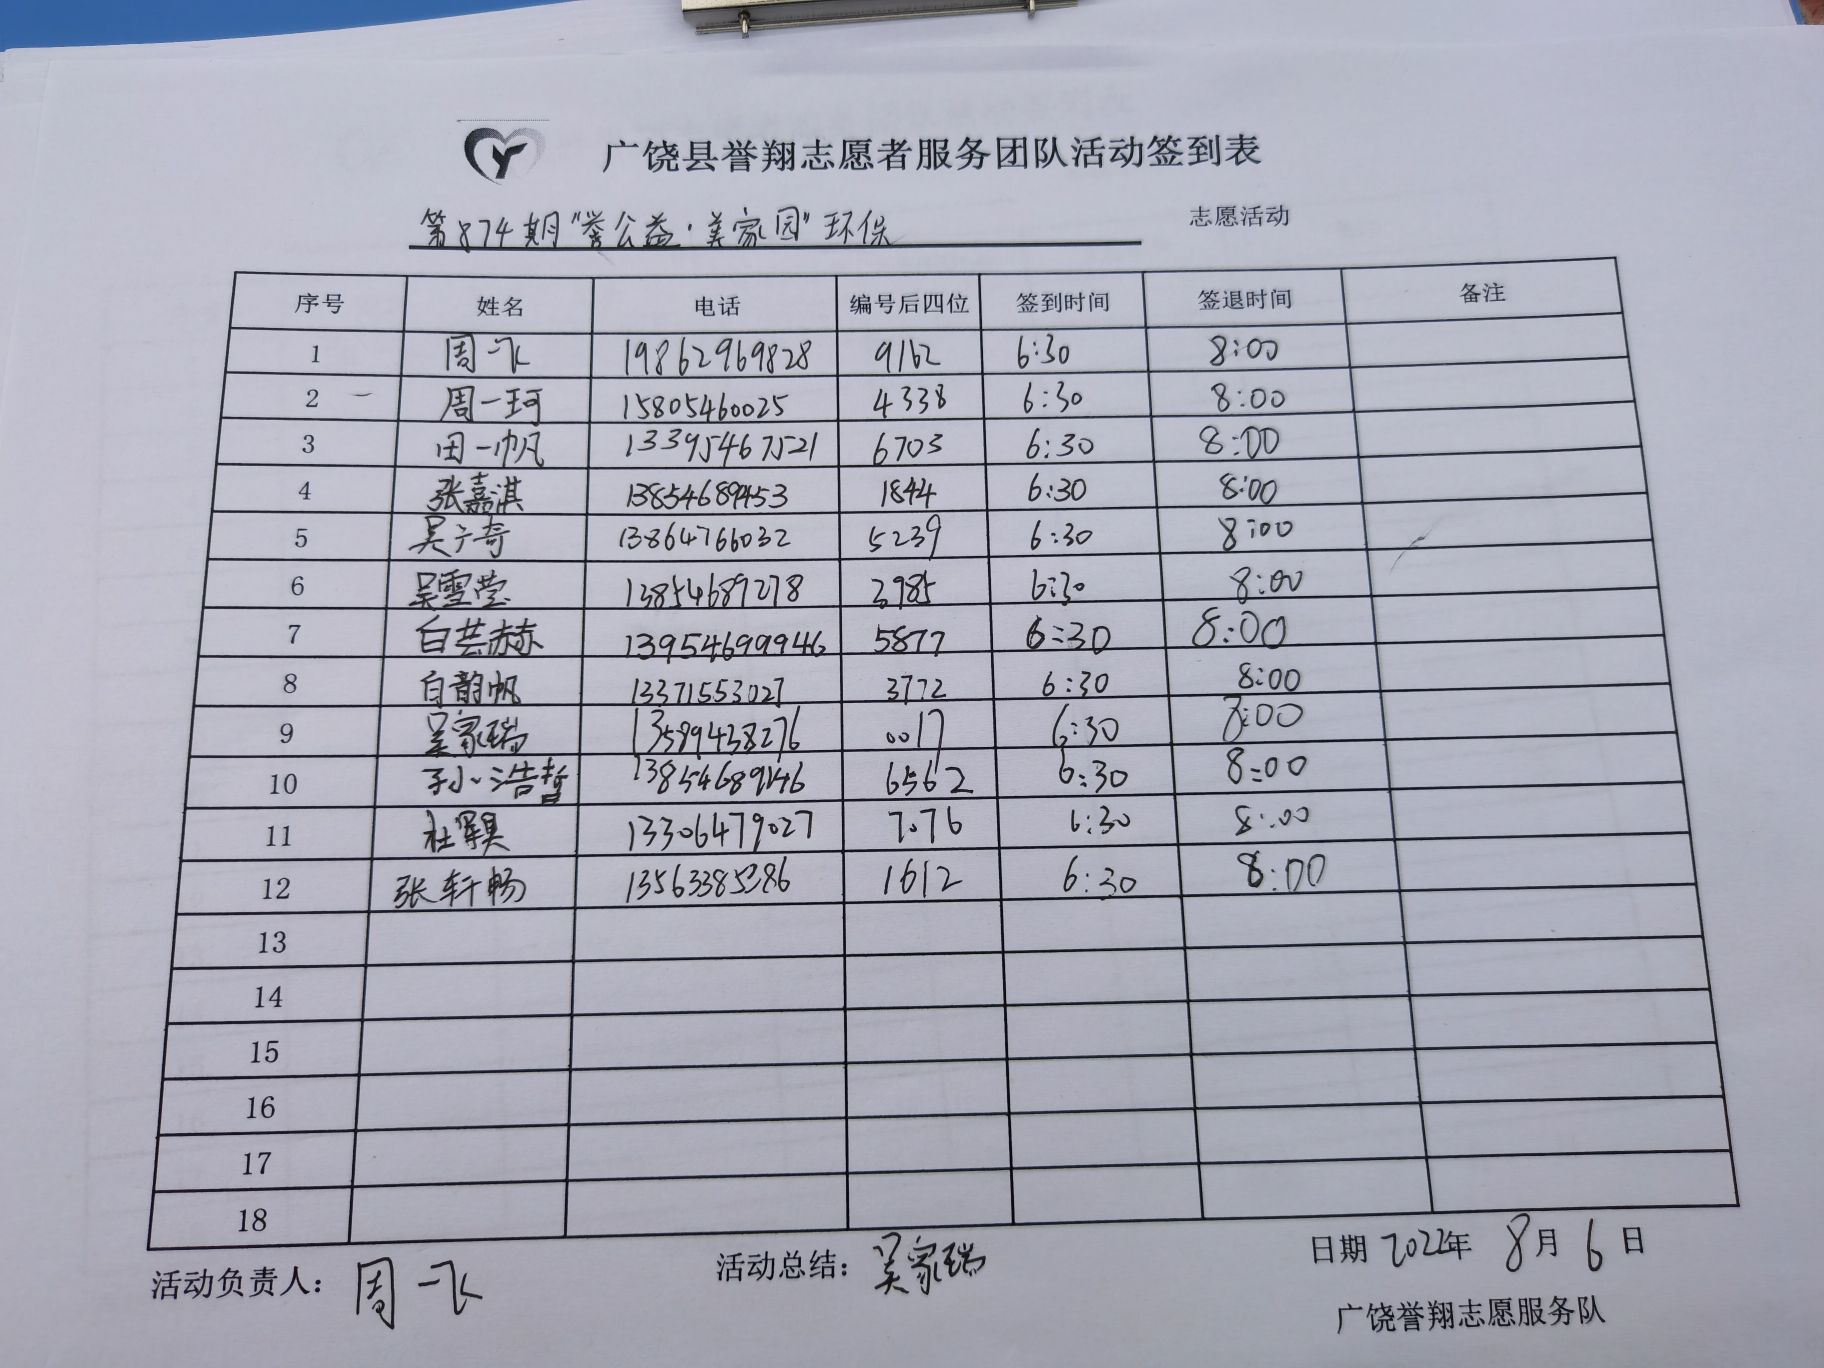 广饶县誉翔志愿者服务团队活动签到表
第874期"誉公益·美家园"环保 志愿活动
序号 姓名 电话 编号后四位 签到时间 签退时间 备注
1 周一飞 19862969828 9162 6:30 8:00
2 周一珂 15805460025 4338 6:30 8:00
3 田一帆 13395467521 6703 6:30 8:00
4 张嘉淇 13854689453 1844 6:30 8:00
5 吴子奇 13864766032 5239 6:30 8:00
6 吴雪莹 13854689278 3985 6:30 8:00
7 白芸赫 13954699946 5877 6:30 8:00
8 白韵帆 13371553027 3772 6:30 8:00
9 吴家瑞 13589438276 0017 6:30 8:00
10 孙浩哲 13854689146 6562 6:30 8:00
11 杜 13306479027 7076 6:30 8:00
12 张轩畅 13563385286 1612 6:30 8:00
13
14
15
16
17
18
活动负责人: 周一飞 活动总结: 吴家瑞 日期 2022年 8月 6日
广饶誉翔志愿服务队